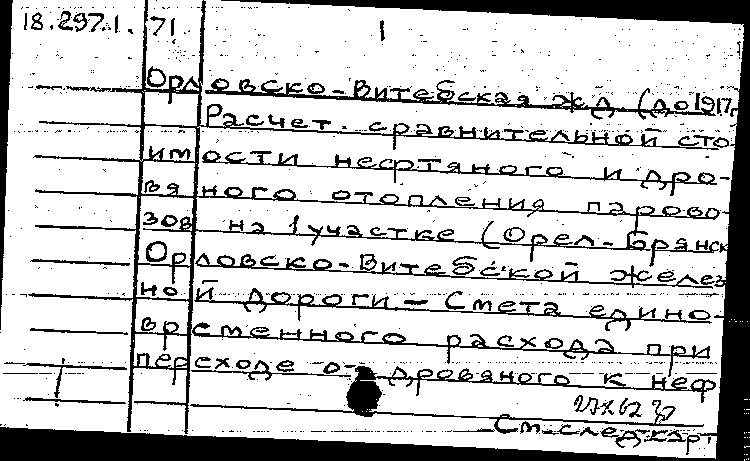 18.297.1. 71. 1
Орловско-Витебская ж.д. (до 1917
Расчет сравнительной сто-
имости нефтяного и дро-
вяного отопления парово-
зов на 1 участке (Орел-Брянск
Орловско-Витебской желез
ной дороги - Смета едино-
временного расхода при
переходе от дровяного к неф
См. след карт